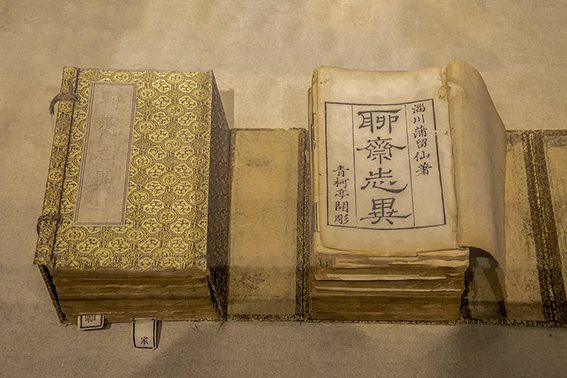 淄川蒲留仙著
聊齋志異
青柯亭開彫
聊齋志異